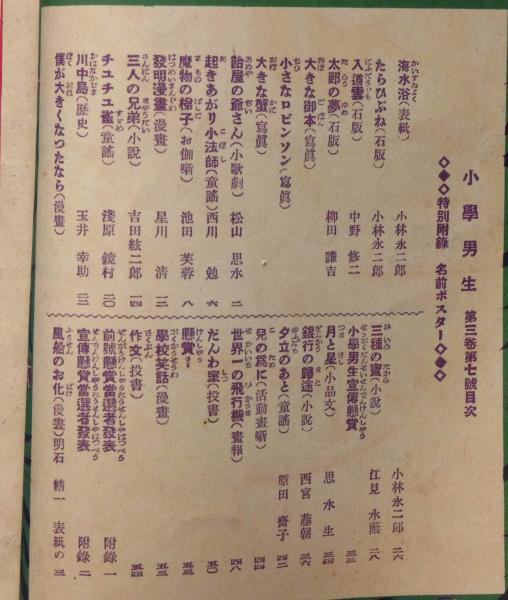 小學男生 第三卷第七號目次
◇◆◇特別附錄 名前ポスター◇◆◇
海水浴(表紙) 小林永二郎
たらひぶね(石版) 小林永二郎
入道雲(石版) 中野修二
太郎の夢(石版) 柳田謙吉
大きな御本(寫眞)
小さなロビンソン(寫眞)
大きな蟹(寫眞)
飴屋の爺さん(小歌劇) 松山思水 二
起きあがり小法師(童謠) 西川勉 六
魔物の梯子(お伽噺) 池田芙蓉 八
發明漫畫(漫畫) 星川清 一三
三人の兄弟(小說) 吉田絃二郎 一四
チユチユ雀(童謠) 淺原鏡村 二〇
川中島(歷史) 玉井幸助 二二
僕が大きくなつたなら(漫畫)
三種の寶(小說) 小林永二郎 二六
小學男生宣傳懸賞 江見水蔭 二八
月と星(小品文) 三三
銀行の歸途(小說) 思水生 三四
夕立のあと(童謠) 西宮藤朝 三六
兒の爲に(活動畫噺) 原田齊子 四二
世界一の飛行機(畫報) 四四
だんわ室(投書) 四八
懸賞? 五〇
學校笑話(漫畫) 五三
作文(投書) 五三
前號懸賞當選者發表 五四
宣傳懸賞當選者發表 附錄一
風船のお化(漫畫) 明石 附錄二
表紙の三